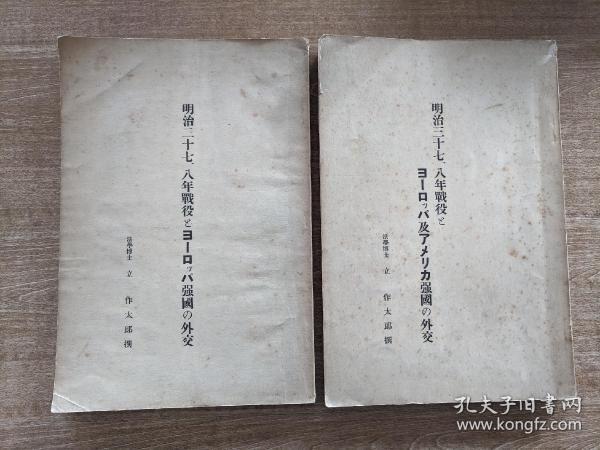 明治三十七、八年戰役とヨーロッパ强國の外交
法學博士 立 作太郎 撰
明治三十七、八年戰役と
ヨーロッパ及アメリカ强國の外交
法學博士 立 作太郎 撰
孔夫子旧书网
www.kongfz.com